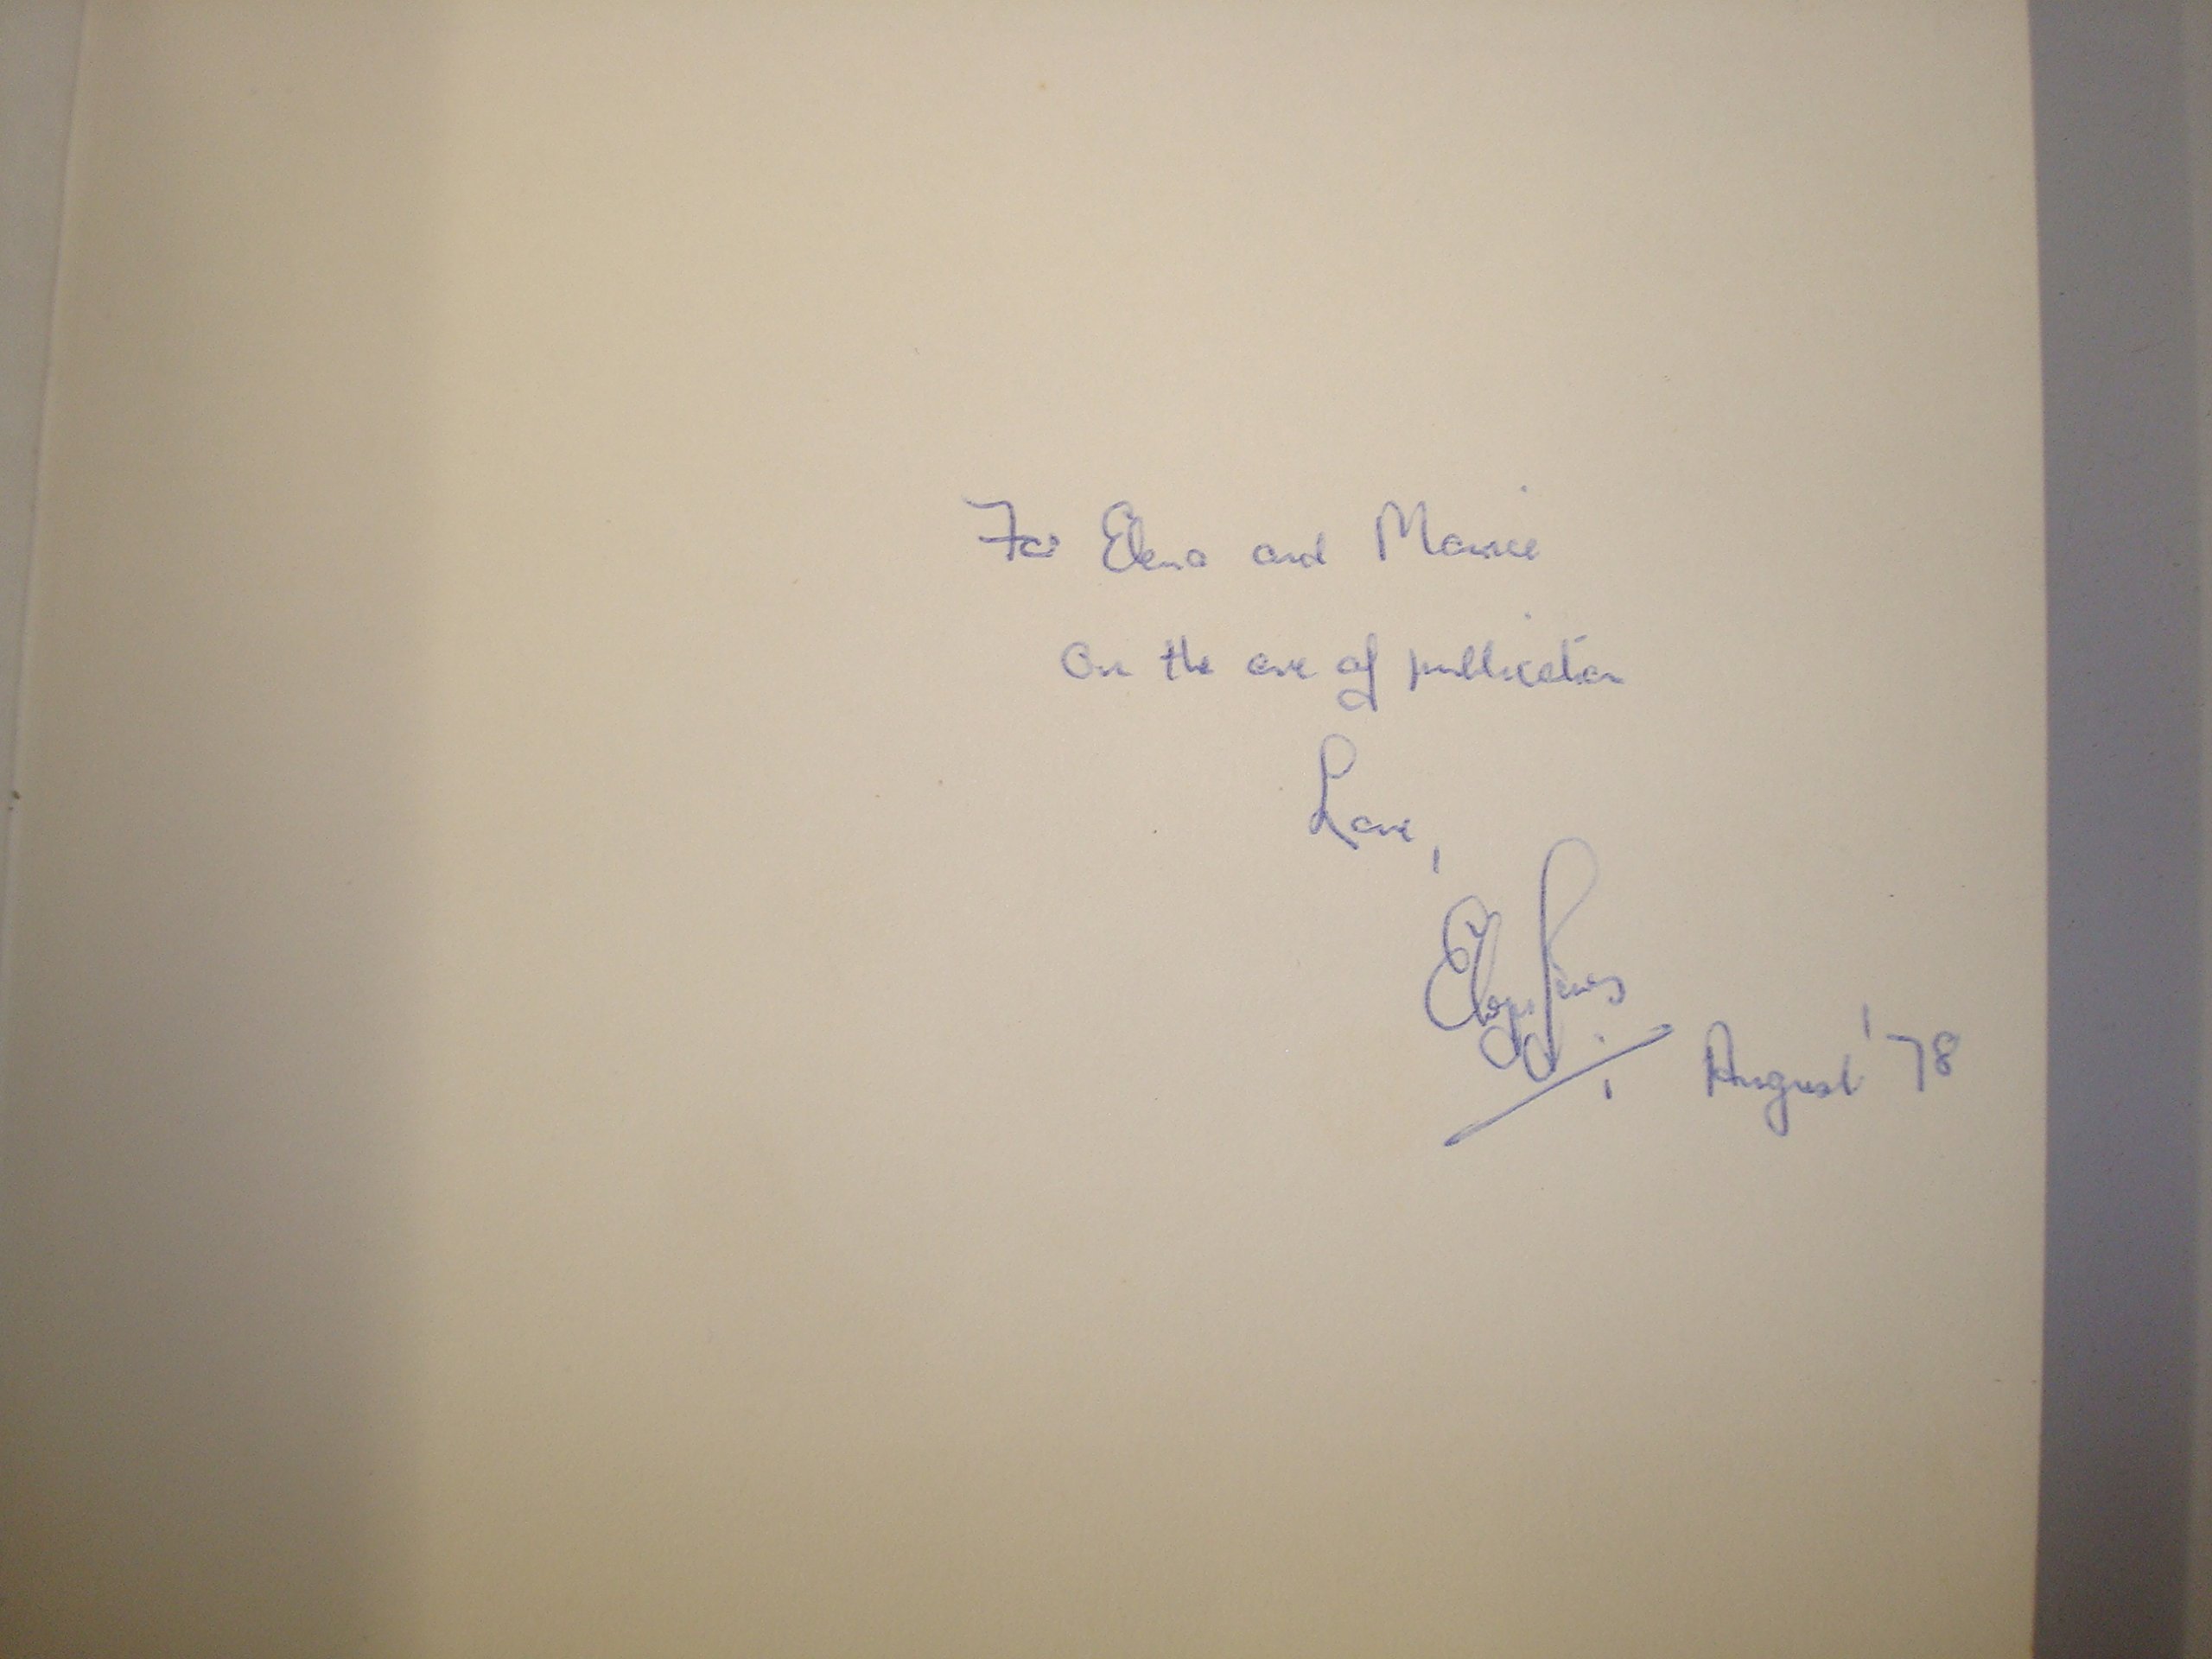 For Elena and Maurice
On the eve of publication
Love,
August '78